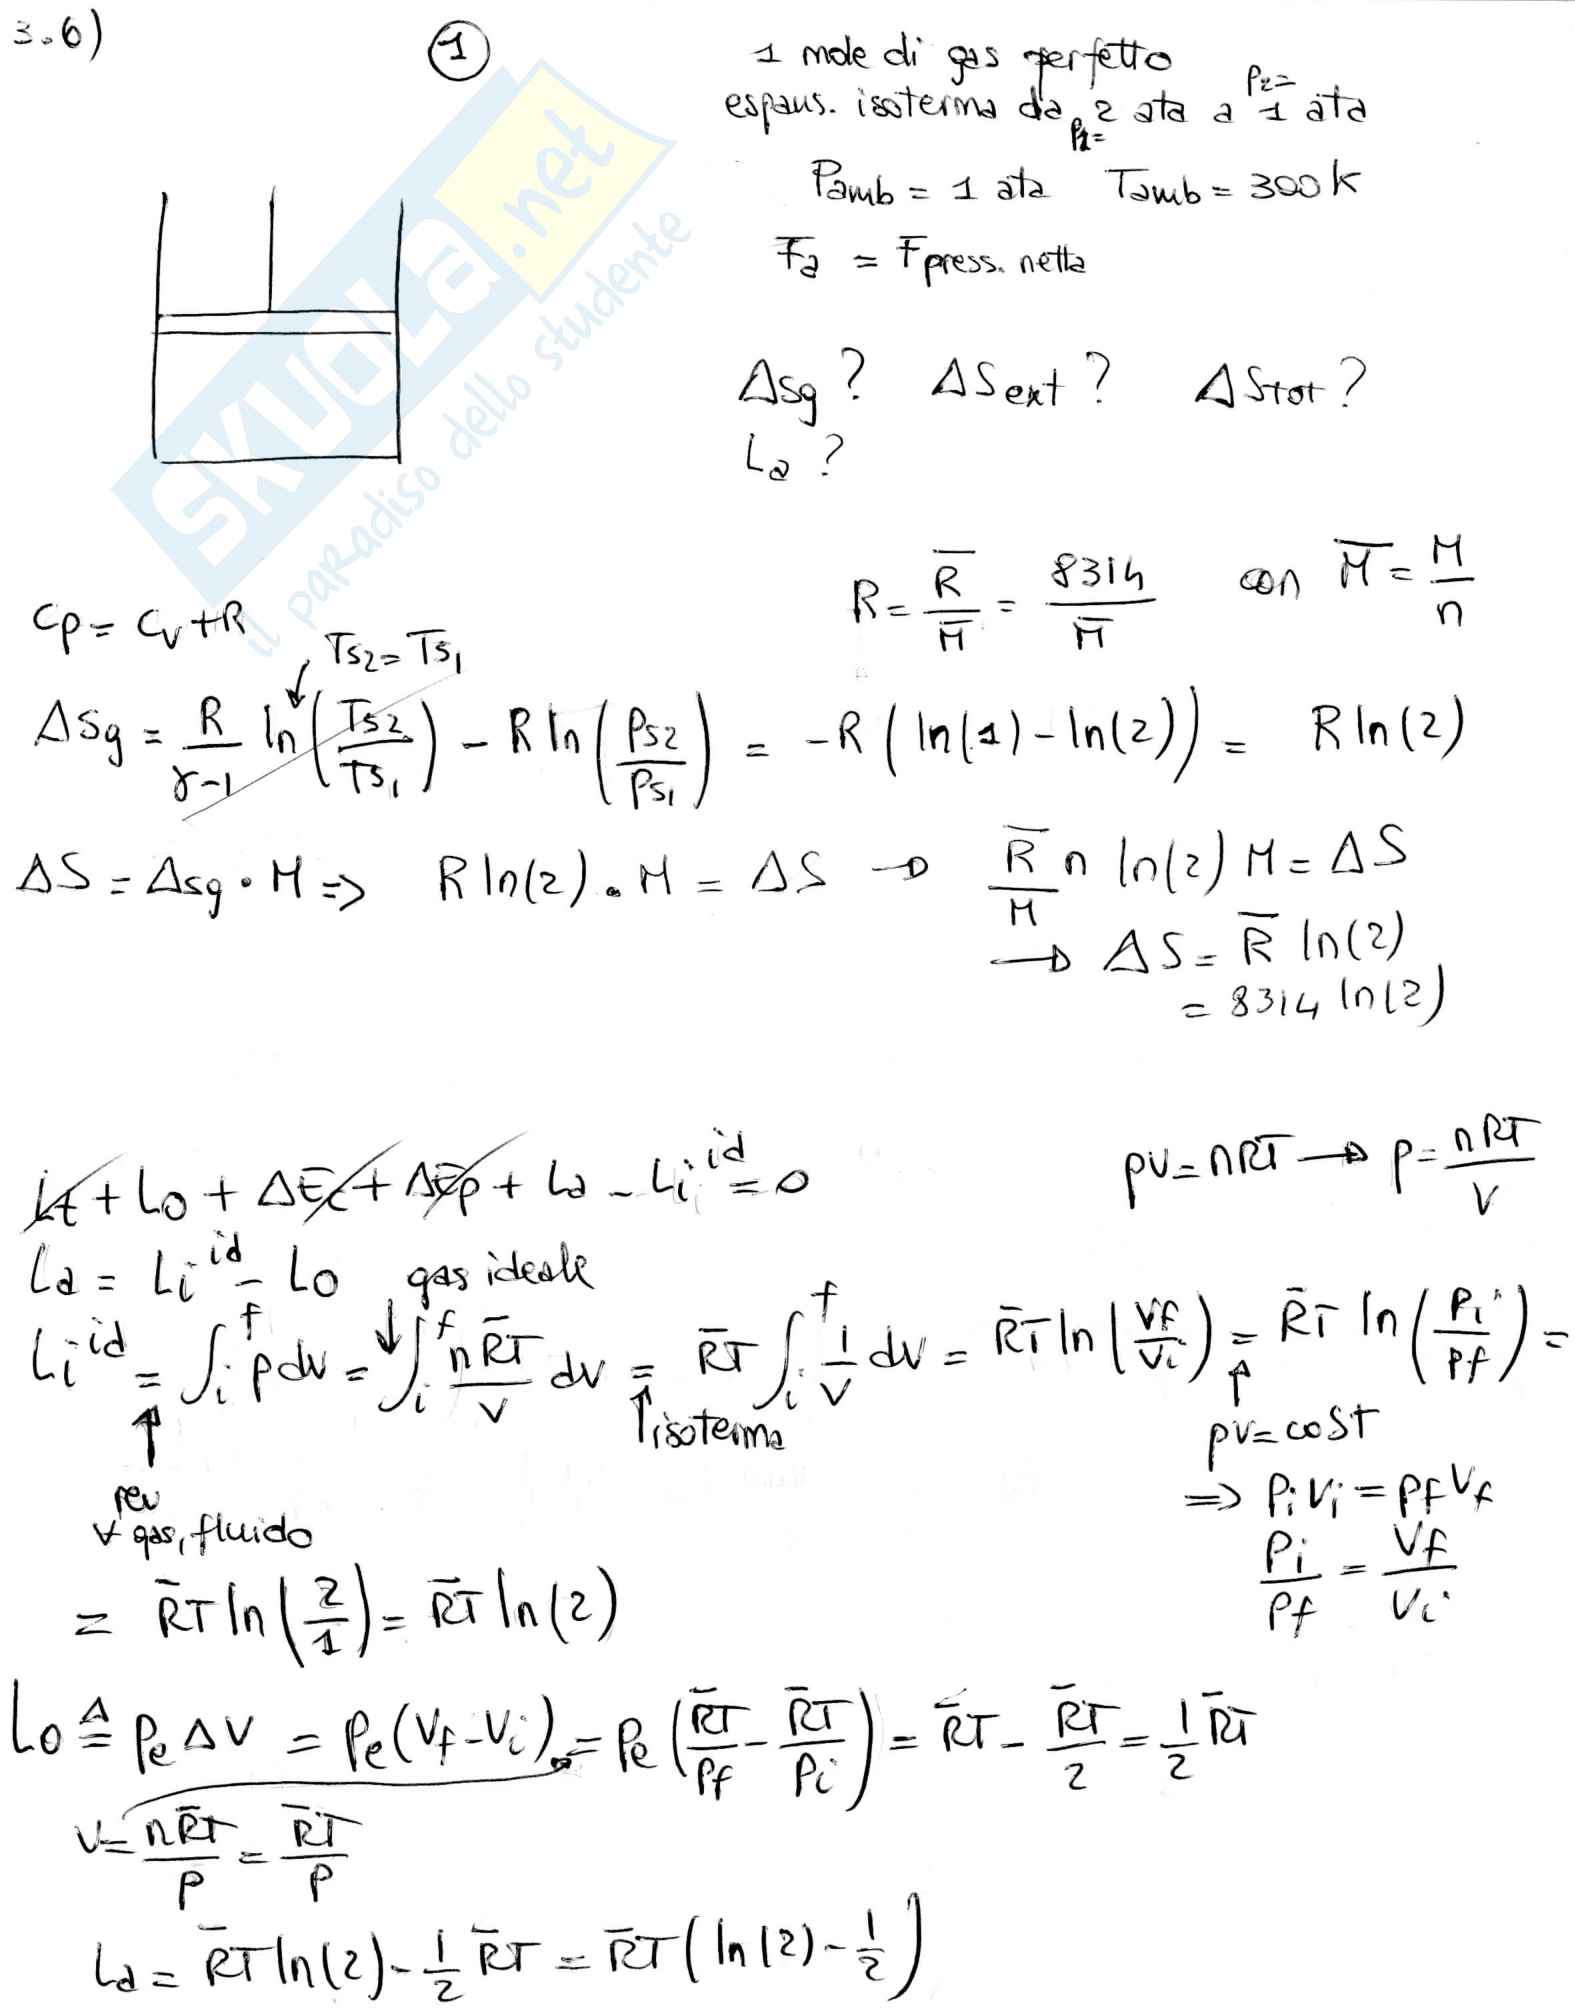 3.6)
1
1 mole di gas perfetto
espans. isoterma da p1= 2 ata a p2= 1 ata
Pamb = 1 ata Tamb = 300 K
Fa = Fpress. netta
SKUOLA.net
il paradiso dello studente
Δsg ? ΔSext ? ΔStot ?
La ?
R = R̅/M̅ = 8314/M̅ con M̅ = M/n
cp = cv + R
Ts2 = Ts1
Δsg = R/(γ-1) ln(Ts2/Ts1) - R ln(Ps2/Ps1) = -R(ln(1) - ln(2)) = R ln(2)
ΔS = Δsg · M => R ln(2) · M = ΔS → R̅/M n ln(2) M = ΔS
→ ΔS = R̅ ln(2)
= 8314 ln(2)
Lt + Lo + ΔEc + ΔEp + La - Li^id = 0
pv = nRT → p = nRT/v
La = Li^id - Lo gas ideale
Li^id = ∫i^f p dv = ∫i^f nR̅T/v dv = R̅T ∫i^f 1/v dv = R̅T ln(Vf/Vi) = R̅T ln(Pi/Pf) =
isoterma
pv = cost
=> Pi Vi = Pf Vf
per
∀ gas, fluido
Pi/Pf = Vf/Vi
= R̅T ln(2/1) = R̅T ln(2)
Lo ≜ Pe ΔV = Pe(Vf - Vi) = Pe(R̅T/Pf - R̅T/Pi) = R̅T - R̅T/2 = 1/2 R̅T
V = nR̅T/P = R̅T/P
La = R̅T ln(2) - 1/2 R̅T = R̅T(ln(2) - 1/2)